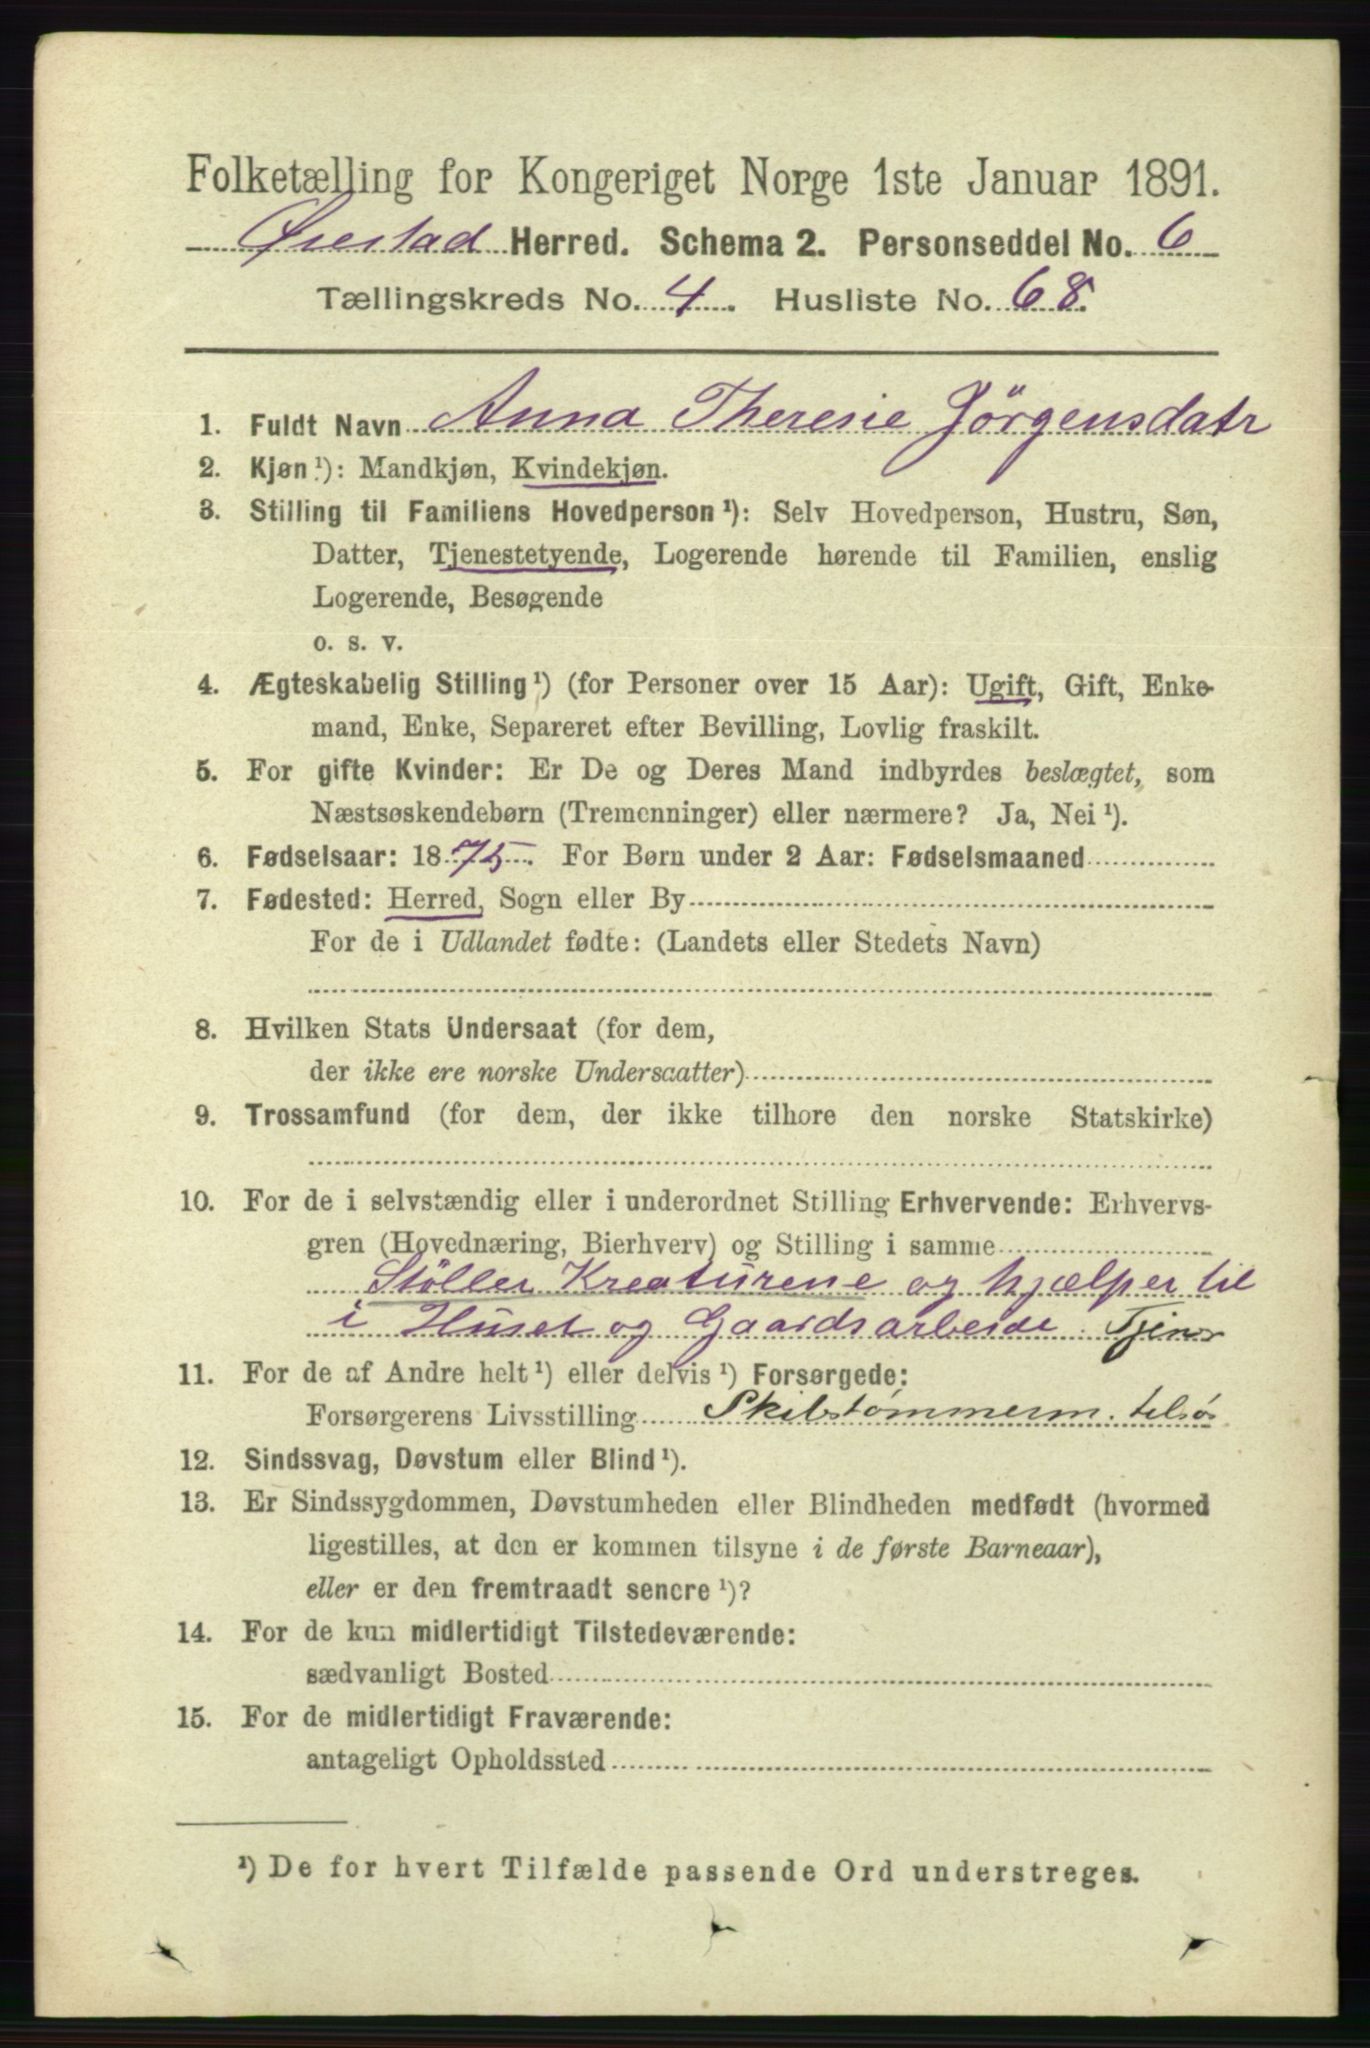 Folketælling for Kongeriget Norge 1ste Januar 1891.
Øiestad Herred. Schema 2. Personseddel No. 6
Tællingskreds No. 4. Husliste No. 68.
1. Fuldt Navn Anna Theresie Jörgensdatr
2. Kjøn ¹): Mandkjøn, Kvindekjøn.
3. Stilling til Familiens Hovedperson ¹): Selv Hovedperson, Hustru, Søn,
Datter, Tjenestetyende, Logerende hørende til Familien, enslig
Logerende, Besøgende
o. s. v.
4. Ægteskabelig Stilling ¹) (for Personer over 15 Aar): Ugift, Gift, Enke-
mand, Enke, Separeret efter Bevilling, Lovlig fraskilt.
5. For gifte Kvinder: Er De og Deres Mand indbyrdes beslægtet, som
Næstsøskendebørn (Tremenninger) eller nærmere? Ja, Nei ¹).
6. Fødselsaar: 1875. For Børn under 2 Aar: Fødselsmaaned
7. Fødested: Herred, Sogn eller By
For de i Udlandet fødte: (Landets eller Stedets Navn)
8. Hvilken Stats Undersaat (for dem,
der ikke ere norske Undersaatter)
9. Trossamfund (for dem, der ikke tilhore den norske Statskirke)
10. For de i selvstændig eller i underordnet Stilling Erhvervende: Erhvervs-
gren (Hovednæring, Bierhverv) og Stilling i samme
Stöller Kreaturene og hjælper til
i Huset og Gaardsarbeide. Tjener
11. For de af Andre helt ¹) eller delvis ¹) Forsørgede:
Forsørgerens Livsstilling Skibstømmerm. tilsøs
12. Sindssvag, Døvstum eller Blind ¹).
13. Er Sindssygdommen, Døvstumheden eller Blindheden medfødt (hvormed
ligestilles, at den er kommen tilsyne i de første Barneaar),
eller er den fremtraadt senere ¹)?
14. For de kun midlertidigt Tilstedeværende:
sædvanligt Bosted
15. For de midlertidigt Fraværende:
antageligt Opholdssted
¹) De for hvert Tilfælde passende Ord understreges.